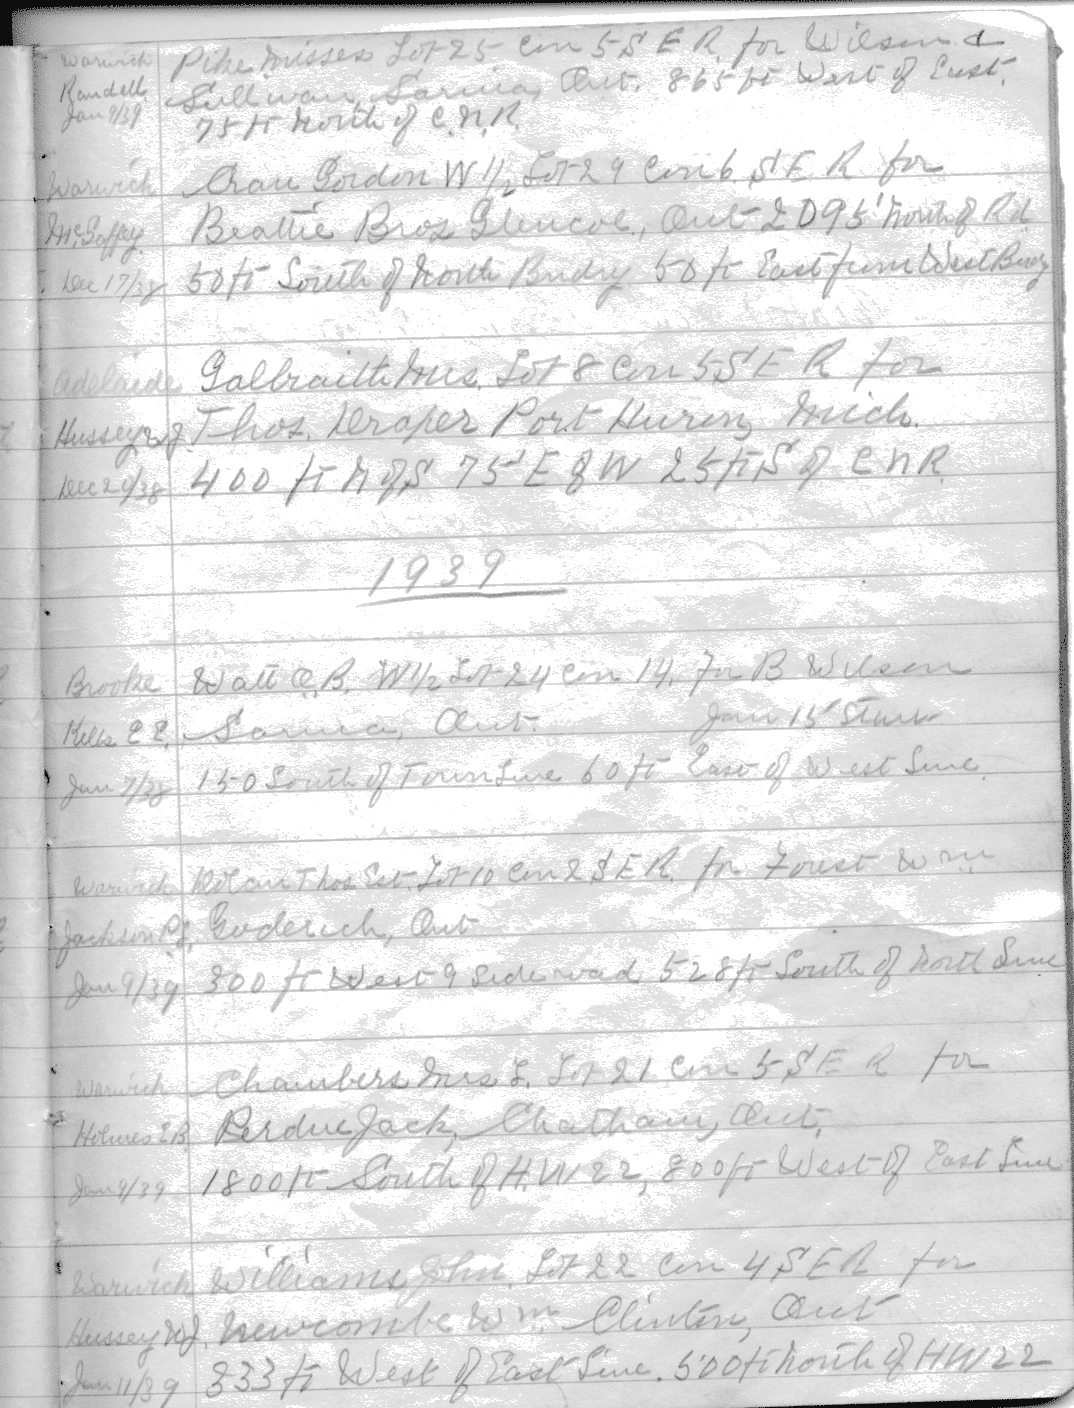 Warwick Pike Misses Lot 25 Con 5 S E R for Wilson &
Randall Sullivan, Sarnia, Ont. 865 ft West of East.
Jan 9/39 75 ft North of C.N.R.
Warwick Gordon W 1/2 Lot 29 Con 6 S E R for
McGaffey Beattie Bros Glencoe, Ont 2095' North of Rd
Dec 17/38 50 ft South of North Bndry 50 ft East from West Bndry
Adelaide Galbraith Mrs. Lot 8 Con 5 S E R for
Hussey W J. Thos. Draper Port Huron, Mich.
Dec 29/38 400 ft N of S 75' E of W 25 ft S of C N R.
1939
Brooke Watt B. W 1/2 Lot 24 Con 14. For B Wilson
Kells Sarnia, Ont. Jan 15
Jan 7/38 150 South of Town Line 60 ft East of West Line.
Warwick Thos Est. Lot 10 Con 2 S E R. for Forest Wm
Jackson Goderich, Ont
Jan 9/39 300 ft West 9 Side road 528 ft South of North Line
Warwick Chambers Mrs L. Lot 21 Con 5 S E R for
Holmes E.B. Perdue Jack, Chatham, Ont.
Jan 9/39 1800 ft South of H.W 22, 800 ft West of East Line
Warwick Williams John. Lot 22 Con 4 S E R for
Hussey W J. Newcombe Wm Clinton, Ont
Jan 11/39 333 ft West of East Line. 500 ft North of H W 22